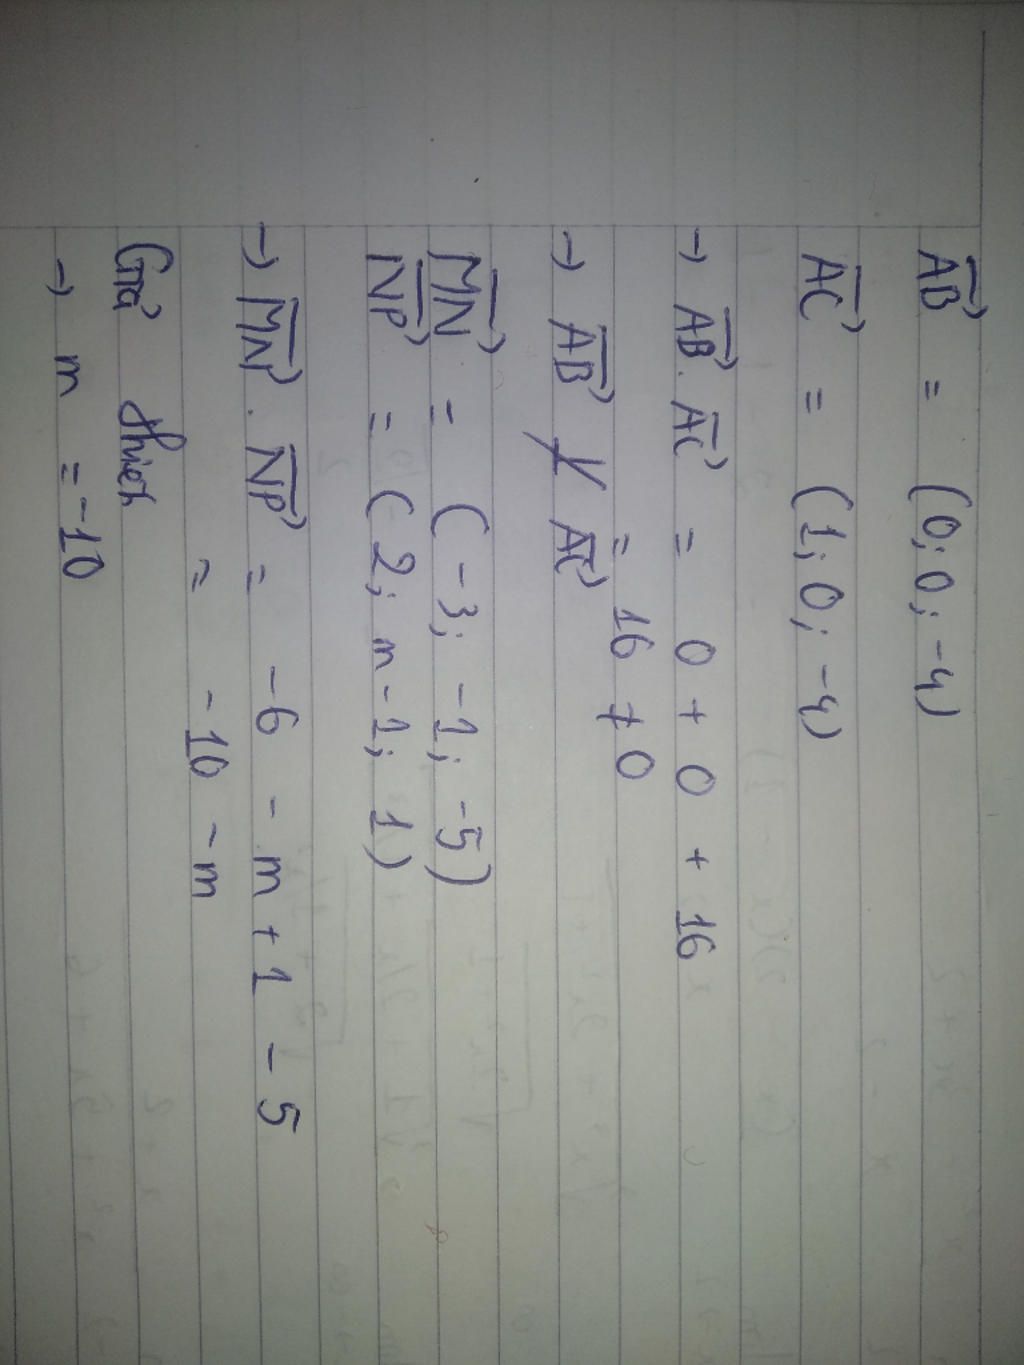 AB⃗ = (0; 0; -4)
AC⃗ = (1; 0; -4)
→ AB⃗ . AC⃗ = 0 + 0 + 16
= 16 ≠ 0
→ AB⃗ ⊥̸ AC⃗
MN⃗ = (-3; -1; -5)
NP⃗ = (2; m-1; 1)
→ MN⃗ . NP⃗ = -6 - m + 1 - 5
= -10 - m
Giả thiết
→ m = -10